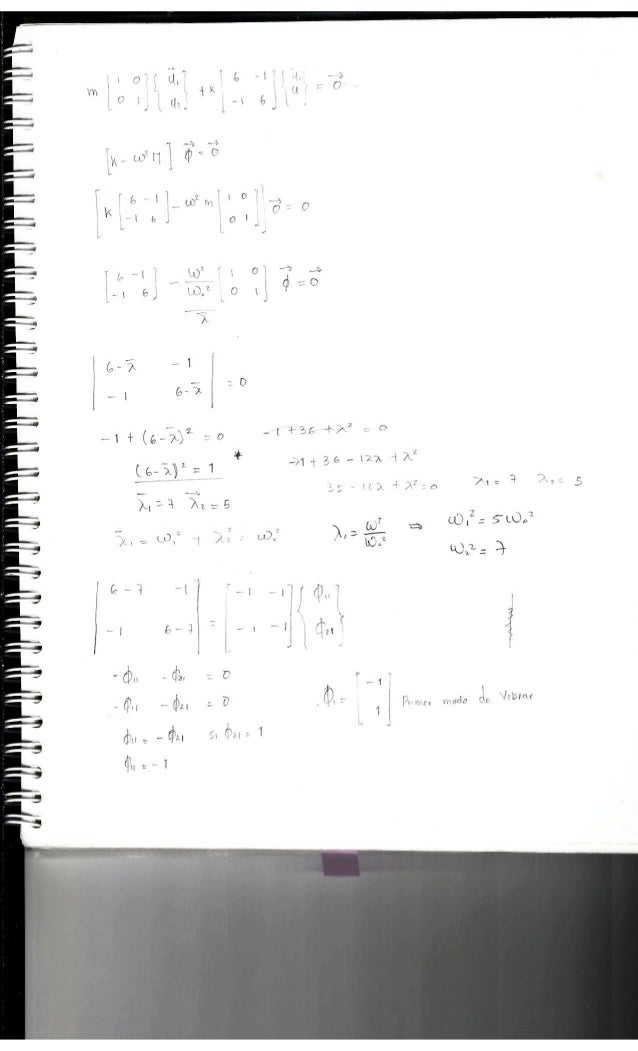 m [1 0 0 1] { ü₁ ü₂ } + k [6 -1 -1 6] { u₁ u } = 0⃗
[k - ω² M] ϕ⃗ = 0⃗
[k [6 -1 -1 6] - ω² m [1 0 0 1]] 0⃗ = 0
[6 -1 -1 6] - ω²/ω₀² [1 0 0 1] ϕ⃗ = 0⃗
λ̄
| 6-λ̄ -1 -1 6-λ̄ | = 0
-1 + (6-λ̄)² = 0 -1+36+λ² = 0
(6-λ̄)² = 1 * -1+36-12λ+λ²
35-12λ+λ²=0 λ₁=7 λ₂=5
λ̄₁=7 λ̄₂=5
λ̄₁ = ω₁² y λ₂² = ω₂² λ₁ = ω²/ω₀² ⇒ ω₁² = 5ω₀²
ω₂² = 7
| 6-7 -1 -1 6-7 | = [-1 -1 -1 -1] { ϕ₁₁ ϕ₂₁ }
-ϕ₁₁ -ϕ₂₁ = 0
-ϕ₁₁ -ϕ₂₁ = 0 ϕ₁ = [-1 1] Primer modo de Vibrar
ϕ₁₁ = -ϕ₂₁ Si ϕ₂₁ = 1
ϕ₁₁ = -1